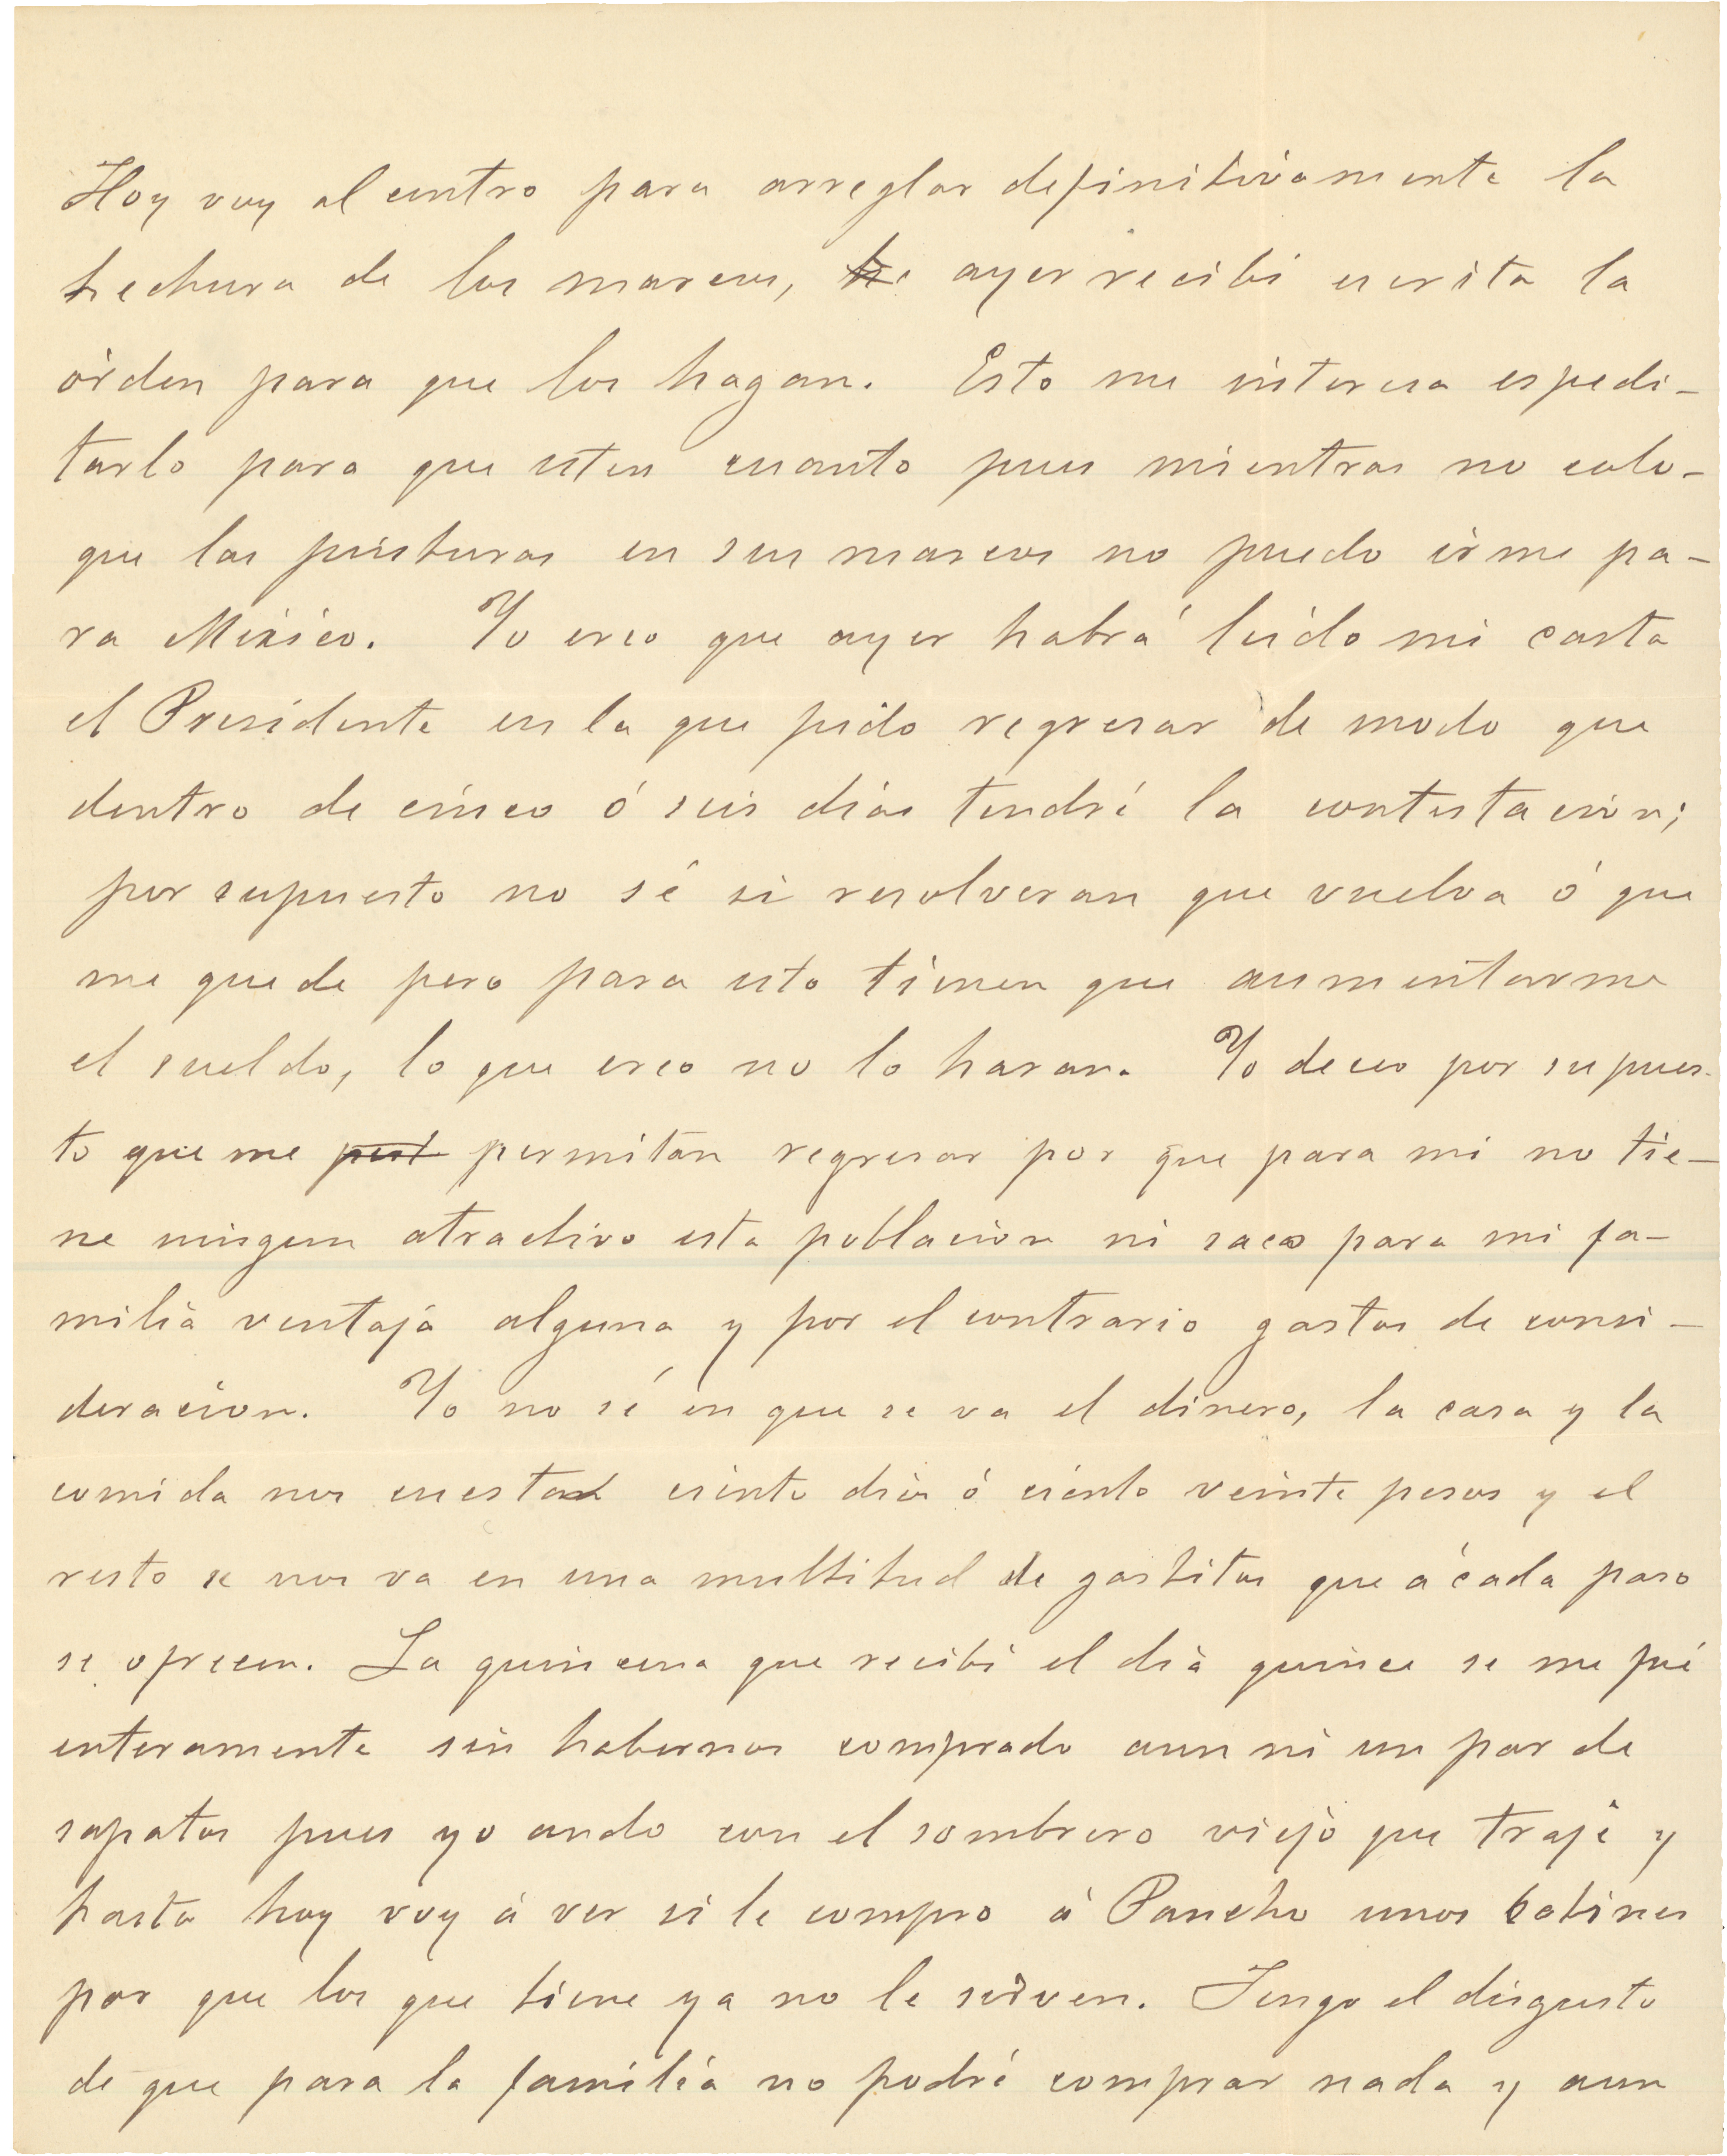 Hoy voy al centro para arreglar definitivamente la
hechura de los marcos, he ayer recibi escrita la
órden para que los hagan. Esto me interesa espedi-
tarlo para que esten cuanto pues mientras no colo-
que las pinturas en sus marcos no puedo irme pa-
ra México. Yo creo que ayer habrá leido mi carta
el Presidente en la que pido regresar de modo que
dentro de cinco ó seis dias tendré la contestacion;
por supuesto no sé si resolveran que vuelva ó que
me quede pero para esto tienen que aumentarme
el sueldo, lo que creo no lo haran. Yo deceo por supues-
to que me pert permitan regresar por que para mi no tie-
ne ningun atractivo esta poblacion ni saco para mi fa-
milia ventaja alguna y por el contrario gastos de consi-
deracion. Yo no sé en que se va el dinero, la casa y la
comida nos cuesta ciento diez ó ciento veinte pesos y el
resto se nos va en una multitud de gastitos que á cada paso
se ofrecen. La quincena que recibi el dia quince se me fué
enteramente sin habernos comprado aun ni un par de
sapatos pues yo ando con el sombrero viejo que traje y
hasta hoy voy á ver si le compro á Pancho unos botines
por que los que tiene ya no le sirven. Tengo el disgusto
de que para la familia no podré comprar nada y aun